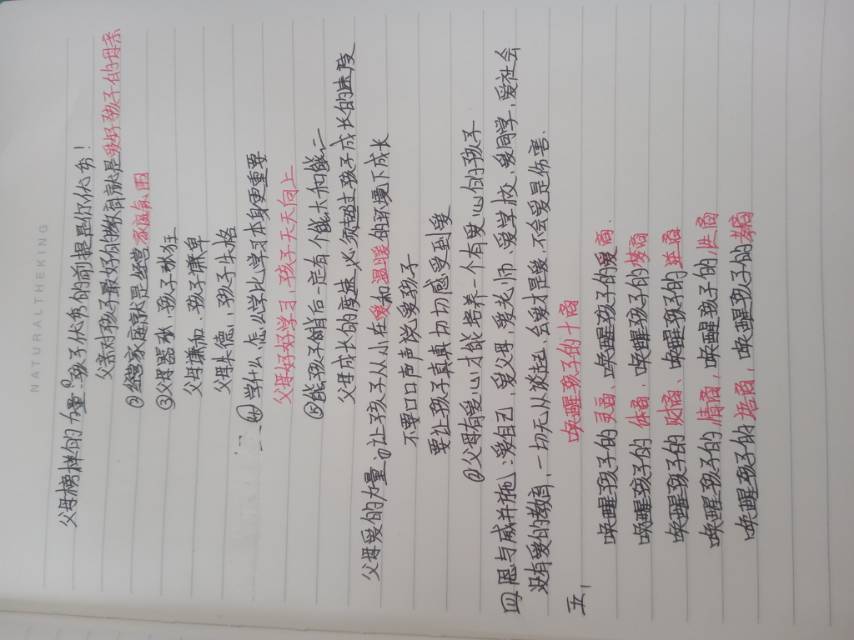 NATURALTHEKING
父母榜样的力量:①孩子优秀的前提是你优秀!
父亲对孩子最好的教育就是爱好孩子的母亲
②经营家庭就是经营家庭氛围
③父母嚣张,孩子猖狂
父母谦和,孩子谦卑
父母失德,孩子失格
④学什么,怎么学比学习本身更重要
父母好好学习,孩子天天向上
⑤能孩子的背后一定有个能大和能二
父母成长的度速,必须超过孩子成长的速度
父母爱的力量:①让孩子从小在爱和温暖的环境下成长
不要口口声声说爱孩子
要让孩子真真切切感受到爱
②父母有爱心才能培养一个有爱心的孩子
四恩与威并施:爱自己,爱父母,爱老师,爱学校,爱同学,爱社会
没有爱的教育,一切无从谈起,会爱才是爱,不会爱是伤害.
五、 唤醒孩子的十商
唤醒孩子的灵商、唤醒孩子的爱商.
唤醒孩子的体商,唤醒孩子的
唤醒孩子的财商、唤醒孩子的
唤醒孩子的情商,唤醒孩子的性商
唤醒孩子的 唤醒孩子的